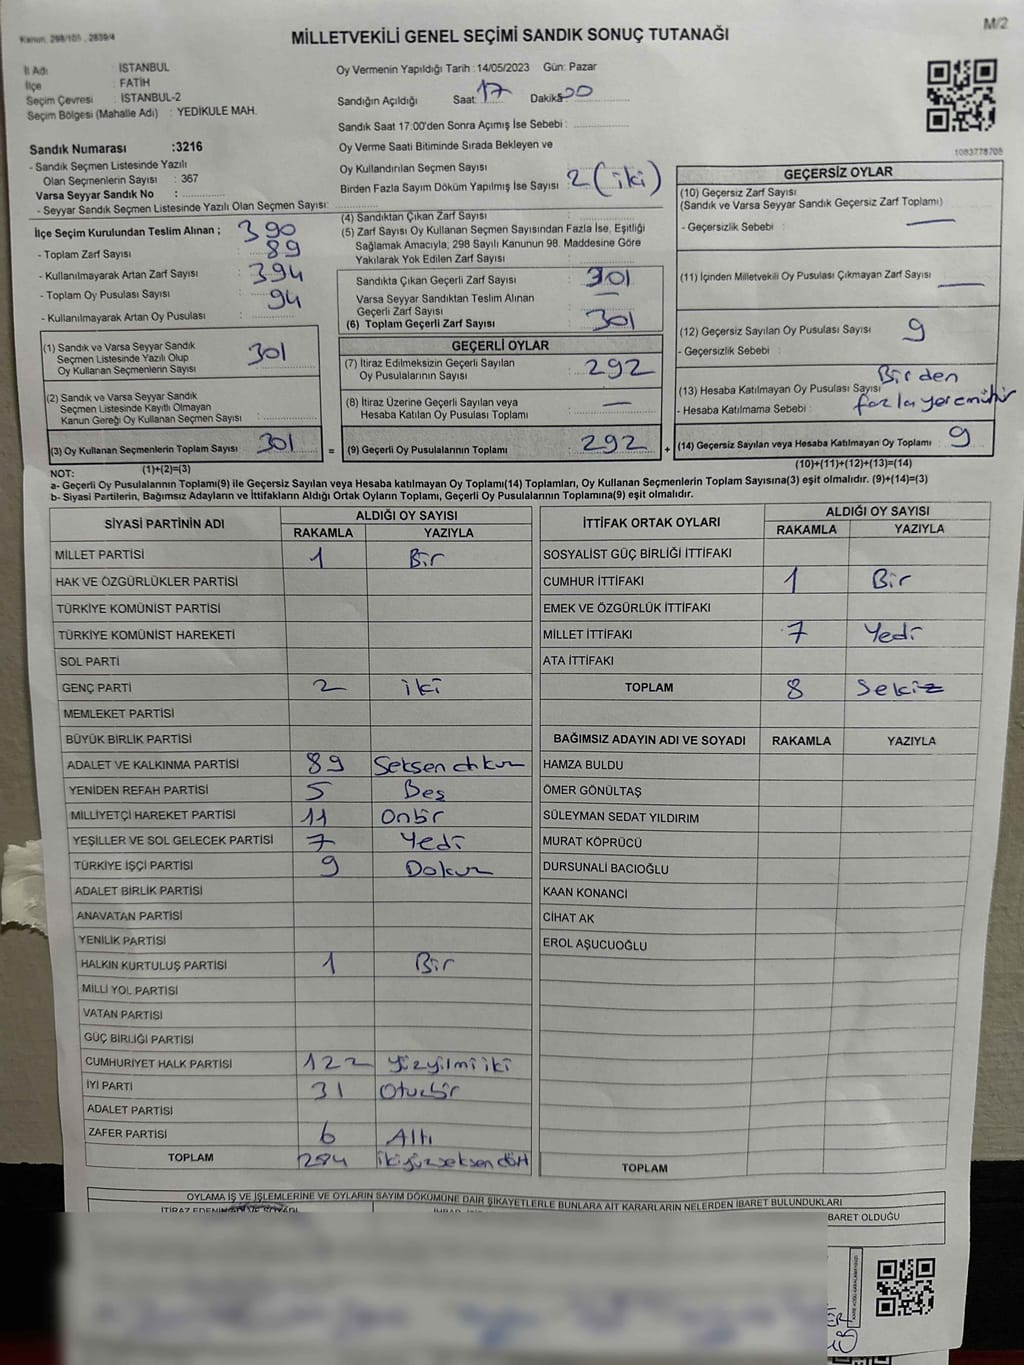 Kanun, 298/105 , 2839/4
M/2
MİLLETVEKİLİ GENEL SEÇİMİ SANDIK SONUÇ TUTANAĞI
İl Adı : İSTANBUL
İlçe : FATİH
Seçim Çevresi : İSTANBUL-2
Seçim Bölgesi (Mahalle Adı) : YEDİKULE MAH.
Oy Vermenin Yapıldığı Tarih :14/05/2023 Gün: Pazar
Sandığın Açıldığı Saat: 17 Dakika: 00
Sandık Saat 17:00'den Sonra Açımış İse Sebebi :
Oy Verme Saati Bitiminde Sırada Bekleyen ve
Oy Kullandırılan Seçmen Sayısı
Birden Fazla Sayım Döküm Yapılmış İse Sayısı 2 (iki)
1083778708
Sandık Numarası :3216
- Sandık Seçmen Listesinde Yazılı
Olan Seçmenlerin Sayısı : 367
Varsa Seyyar Sandık No :
- Seyyar Sandık Seçmen Listesinde Yazılı Olan Seçmen Sayısı:
İlçe Seçim Kurulundan Teslim Alınan ;
- Toplam Zarf Sayısı : 390
- Kullanılmayarak Artan Zarf Sayısı : 89
- Toplam Oy Pusulası Sayısı : 394
- Kullanılmayarak Artan Oy Pusulası : 94
(1) Sandık ve Varsa Seyyar Sandık
Seçmen Listesinde Yazılı Olup
Oy Kullanan Seçmenlerin Sayısı : 301
(2) Sandık ve Varsa Seyyar Sandık
Seçmen Listesinde Kayıtlı Olmayan
Kanun Gereği Oy Kullanan Seçmen Sayısı :
(3) Oy Kullanan Seçmenlerin Toplam Sayısı 301 =
(1)+(2)=(3)
(4) Sandıktan Çıkan Zarf Sayısı :
(5) Zarf Sayısı Oy Kullanan Seçmen Sayısından Fazla İse, Eşitliği
Sağlamak Amacıyla, 298 Sayılı Kanunun 98. Maddesine Göre
Yakılarak Yok Edilen Zarf Sayısı :
Sandıkta Çıkan Geçerli Zarf Sayısı : 301
Varsa Seyyar Sandıktan Teslim Alınan
Geçerli Zarf Sayısı : —
(6) Toplam Geçerli Zarf Sayısı : 301
GEÇERLİ OYLAR
(7) İtiraz Edilmeksizin Geçerli Sayılan
Oy Pusulalarının Sayısı : 292
(8) İtiraz Üzerine Geçerli Sayılan veya
Hesaba Katılan Oy Pusulası Toplamı : —
(9) Geçerli Oy Pusulalarının Toplamı : 292 +
GEÇERSİZ OYLAR
(10) Geçersiz Zarf Sayısı
(Sandık ve Varsa Seyyar Sandık Geçersiz Zarf Toplamı)
- Geçersizlik Sebebi : —
(11) İçinden Milletvekili Oy Pusulası Çıkmayan Zarf Sayısı : —
(12) Geçersiz Sayılan Oy Pusulası Sayısı : 9
- Geçersizlik Sebebi :
(13) Hesaba Katılmayan Oy Pusulası Sayısı Birden
- Hesaba Katılmama Sebebi : fazla yere mühür
(14) Geçersiz Sayılan veya Hesaba Katılmayan Oy Toplamı : 9
(10)+(11)+(12)+(13)=(14)
NOT:
a- Geçerli Oy Pusulasının Toplamı(9) ile Geçersiz Sayılan veya Hesaba katılmayan Oy Toplamı(14) Toplamları, Oy Kullanan Seçmenlerin Toplam Sayısına(3) eşit olmalıdır. (9)+(14)=(3)
b- Siyasi Partilerin, Bağımsız Adayların ve İttifakların Aldığı Ortak Oyların Toplamı, Geçerli Oy Pusulalarının Toplamına(9) eşit olmalıdır.
SİYASİ PARTİNİN ADI ALDIĞI OY SAYISI
RAKAMLA YAZIYLA
MİLLET PARTİSİ 1 Bir
HAK VE ÖZGÜRLÜKLER PARTİSİ
TÜRKİYE KOMÜNİST PARTİSİ
TÜRKİYE KOMÜNİST HAREKETİ
SOL PARTİ
GENÇ PARTİ 2 iki
MEMLEKET PARTİSİ
BÜYÜK BİRLİK PARTİSİ
ADALET VE KALKINMA PARTİSİ 89 Seksen dokuz
YENİDEN REFAH PARTİSİ 5 Beş
MİLLİYETÇİ HAREKET PARTİSİ 11 Onbir
YEŞİLLER VE SOL GELECEK PARTİSİ 7 Yedi
TÜRKİYE İŞÇİ PARTİSİ 9 Dokuz
ADALET BİRLİK PARTİSİ
ANAVATAN PARTİSİ
YENİLİK PARTİSİ
HALKIN KURTULUŞ PARTİSİ 1 Bir
MİLLİ YOL PARTİSİ
VATAN PARTİSİ
GÜÇ BİRLİĞİ PARTİSİ
CUMHURİYET HALK PARTİSİ 122 Yüzyirmiiki
İYİ PARTİ 31 Otuzbir
ADALET PARTİSİ
ZAFER PARTİSİ 6 Altı
TOPLAM 284 ikiyüzseksendört
İTTİFAK ORTAK OYLARI ALDIĞI OY SAYISI
RAKAMLA YAZIYLA
SOSYALİST GÜÇ BİRLİĞİ İTTİFAKI
CUMHUR İTTİFAKI 1 Bir
EMEK VE ÖZGÜRLÜK İTTİFAKI
MİLLET İTTİFAKI 7 Yedi
ATA İTTİFAKI
TOPLAM 8 Sekiz
BAĞIMSIZ ADAYIN ADI VE SOYADI RAKAMLA YAZIYLA
HAMZA BULDU
ÖMER GÖNÜLTAŞ
SÜLEYMAN SEDAT YILDIRIM
MURAT KÖPRÜCÜ
DURSUNALİ BACIOĞLU
KAAN KONANCİ
CİHAT AK
EROL AŞUCUOĞLU
TOPLAM
OYLAMA İŞ VE İŞLEMLERİNE VE OYLARIN SAYIM DÖKÜMÜNE DAİR ŞİKAYETLERLE BUNLARA AİT KARARLARIN NELERDEN İBARET BULUNDUKLARI
BARET OLDUĞU